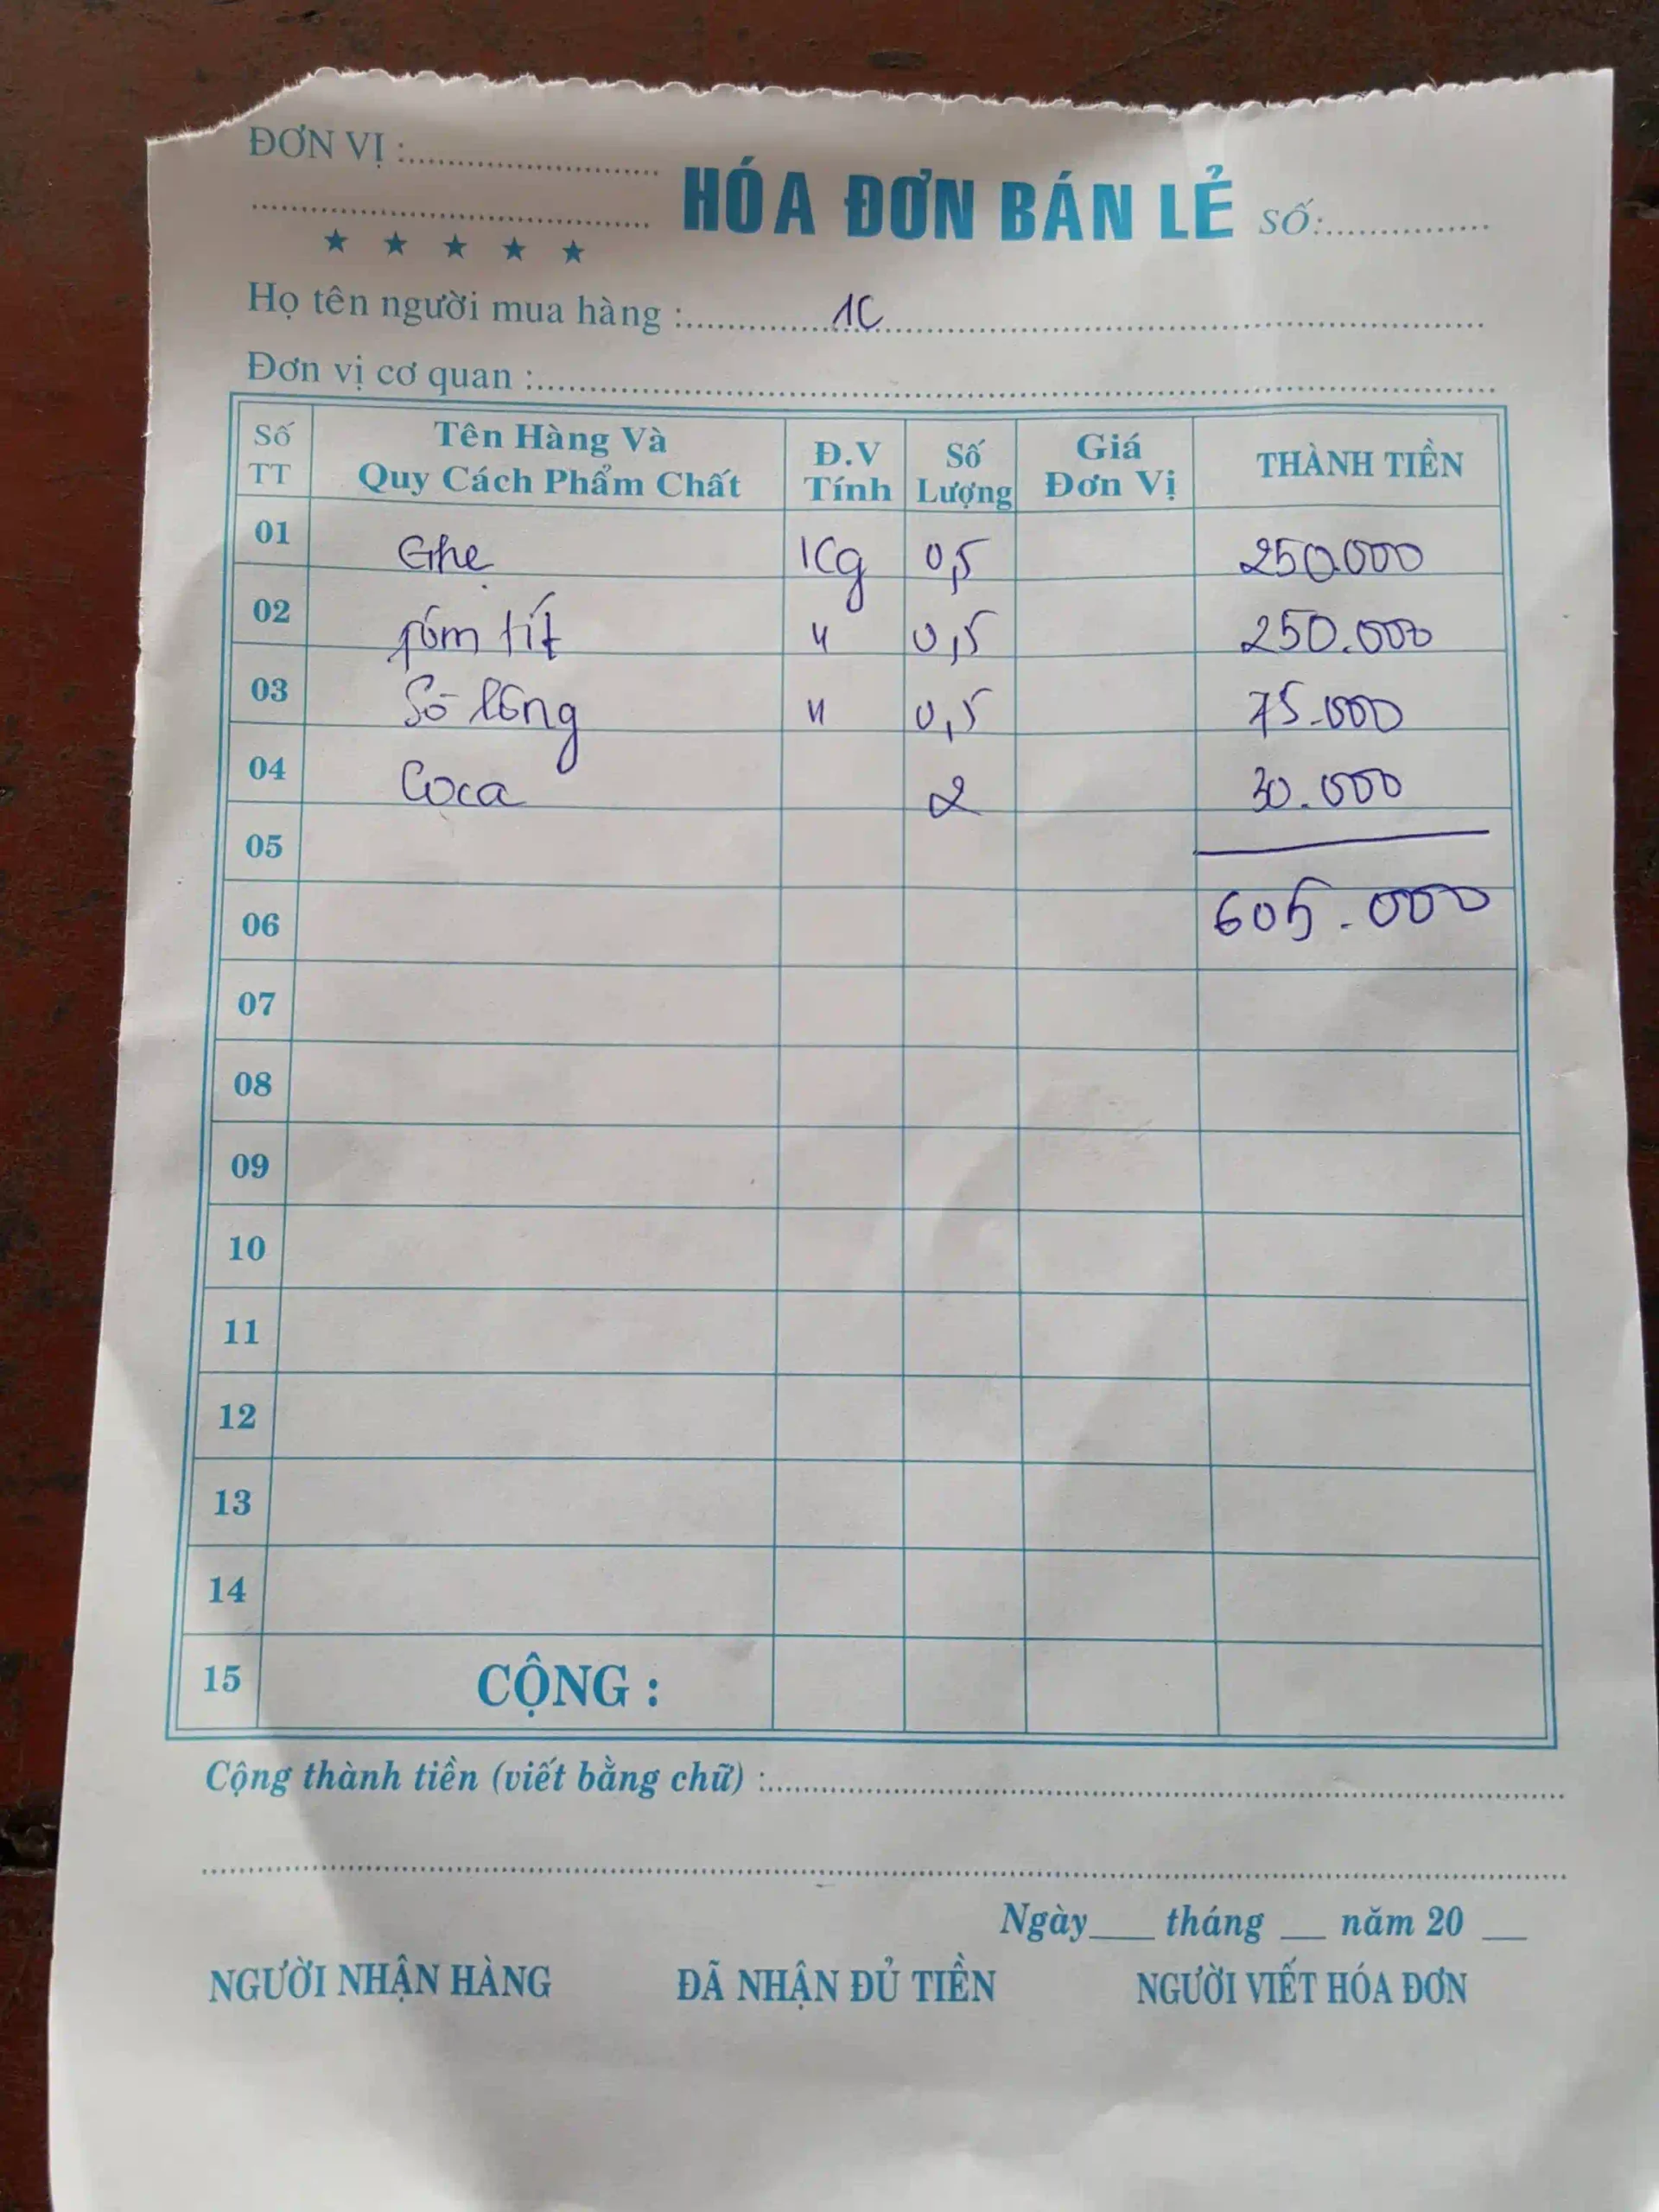 ĐƠN VỊ :
HÓA ĐƠN BÁN LẺ SỐ:
★ ★ ★ ★ ★
Họ tên người mua hàng : 1C
Đơn vị cơ quan :
Số TT Tên Hàng Và Quy Cách Phẩm Chất Đ.V Tính Số Lượng Giá Đơn Vị THÀNH TIỀN
01 Ghẹ Kg 0,5 250.000
02 tôm tít " 0,5 250.000
03 Sò lông " 0,5 75.000
04 Coca 2 30.000
05
06 605.000
07
08
09
10
11
12
13
14
15 CỘNG :
Cộng thành tiền (viết bằng chữ) :
Ngày___ tháng __ năm 20 __
NGƯỜI NHẬN HÀNG ĐÃ NHẬN ĐỦ TIỀN NGƯỜI VIẾT HÓA ĐƠN